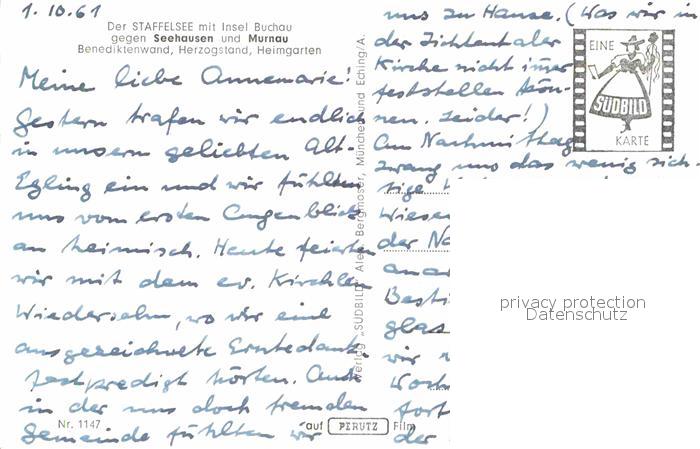 1.10.61
Der STAFFELSEE mit Insel Buchau
gegen Seehausen und Murnau
Benediktenwand, Herzogstand, Heimgarten
Meine liebe Annemarie!
Gestern trafen wir endlich
in unserm geliebten Alt-
Egling ein und wir fühlten
uns vom ersten Augenblick
an heimisch. Heute feierten
wir mit dem ev. Kirchlein
Wiedersehn, wo wir eine
ausgezeichnete Erntedank-
festpredigt hörten. Auch
in der uns doch fremden
Gemeinde fühlten wir
Nr. 1147
auf PERUTZ Film
Verlag „SÜDBILD“ Alex Bergmoser, München und Eching/A.
uns zu Hause. (Was wir in
der Zichtentaler
Kirche nicht immer
feststellen kön-
nen. Leider!)
Am Nachmittag
zwang uns das wenig sich-
tige
Wiesen
der Na
anar
Besti
glas
wir
Woch
fort
der
EINE
SÜDBILD
KARTE
privacy protection
Datenschutz